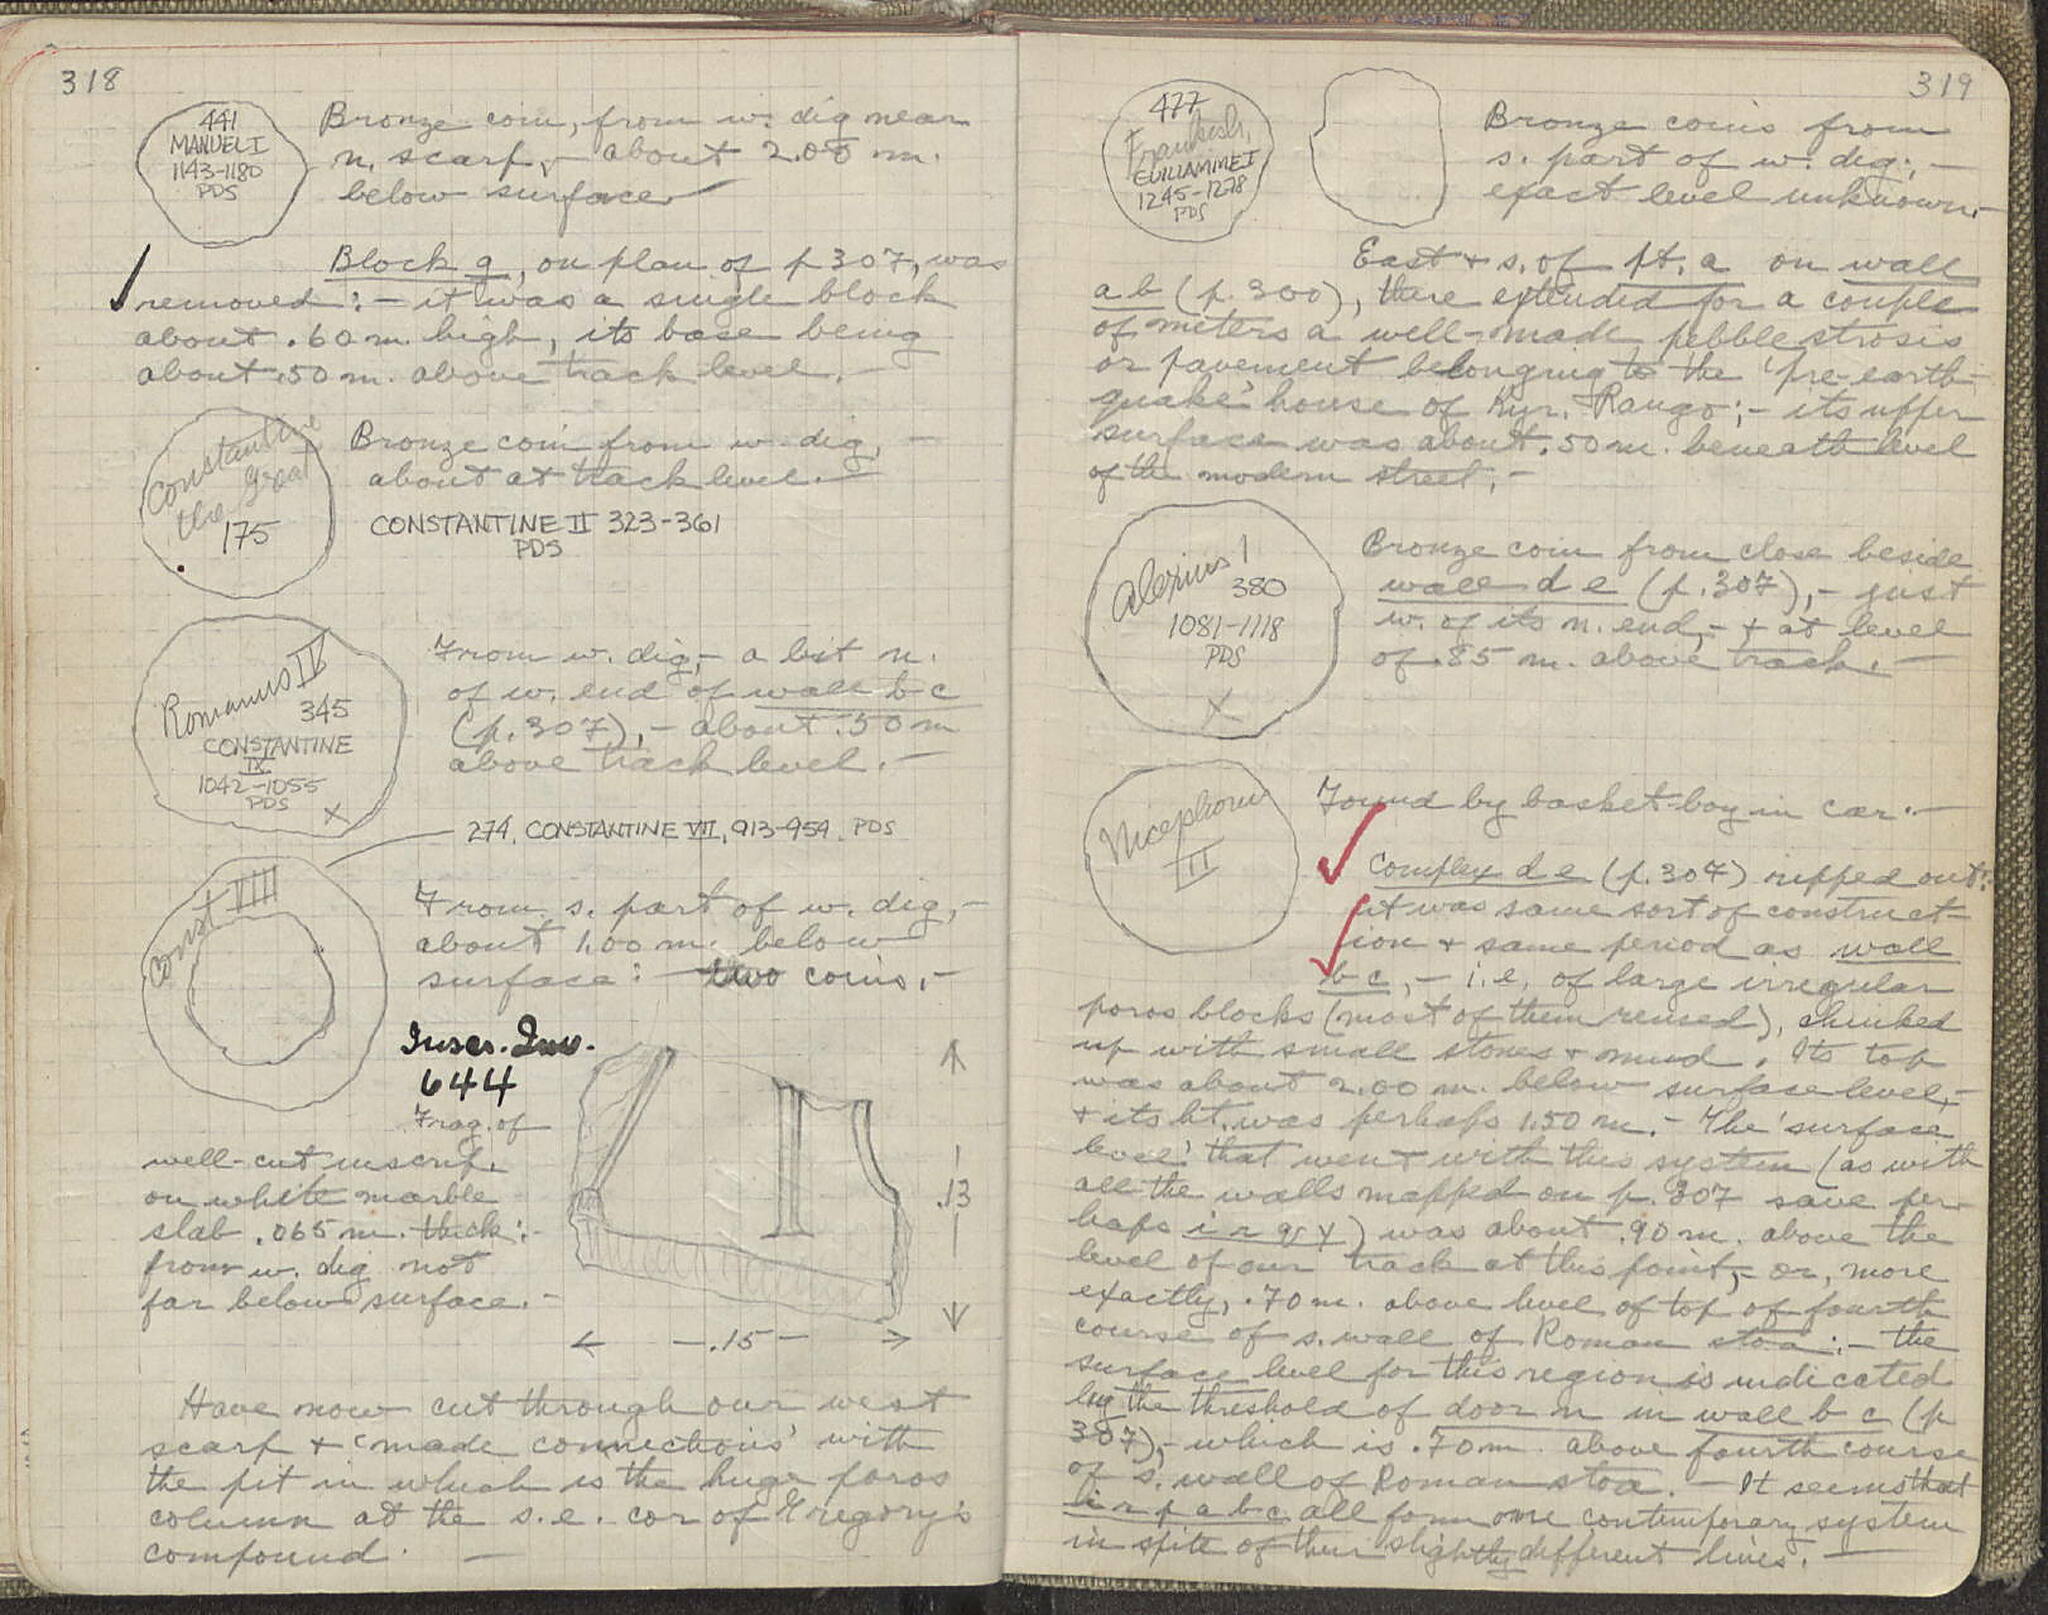 318
441
MANUEL I
1143-1180
PDS
Bronze coin, from w. dig near
n. scarf, - about 2.00 m.
below surface
Block g, on plan of p 307, was
removed: - it was a single block
about .60 m. high, its base being
about .50 m. above track level. -
Constantine
the Great
175
Bronze coin from w. dig, -
about at track level. -
CONSTANTINE II 323-361
PDS
Romanus IV
345
CONSTANTINE
IX
1042-1055
PDS
X
From w. dig, - a bit n.
of w. end of wall b c
(p. 307), - about .50 m
above track level. -
274. CONSTANTINE VII, 913-959. PDS
Const VIII
From s. part of w. dig, -
about 1.00 m. below
surface: two coins. -
Inscr. Inv.
644
Frag. of
well-cut inscrip.
on white marble
slab .065 m. thick: -
from w. dig not
far below surface. -
.13
.15
Have now cut through our west
scarf + 'made connections' with
the pit in which is the huge poros
column at the s.e. cor of Gregory's
compound. -
319
477
Frankish,
GUILLAMME I
1245-1278
PDS
Bronze coins from
s. part of w. dig; -
exact level unknown. -
East + s. of pt. a on wall
a b (p. 300), there extended for a couple
of meters a well-made pebble strosis
or pavement belonging to the 'pre-earth-
quake' house of Kyr. Rango; - its upper
surface was about .50 m. beneath level
of the modern street. -
Alexius I
380
1081-1118
PDS
X
Bronze coin from close beside
wall d e (p. 307), - just
w. of its n. end, - + at level
of .85 m. above track. -
Nicephorus
III
Found by basket-boy in car. -
Complex d e (p. 307) ripped out:
it was same sort of construct-
ion + same period as wall
b c, - i.e. of large irregular
poros blocks (most of them reused), chinked
up with small stones + mud. Its top
was about 2.00 m. below surface level, -
+ its ht. was perhaps 1.50 m. - The 'surface
level' that went with this system (as with
all the walls mapped on p. 307 save per-
haps i r q y) was about .90 m. above the
level of our track at this point, - or, more
exactly, .70 m. above level of top of fourth
course of s. wall of Roman stoa: - the
surface level for this region is indicated
by the threshold of door n in wall b c (p
307), - which is .70 m. above fourth course
of s. wall of Roman stoa. - It seems that
p a b c all form one contemporary system
in spite of their slightly different lines. -